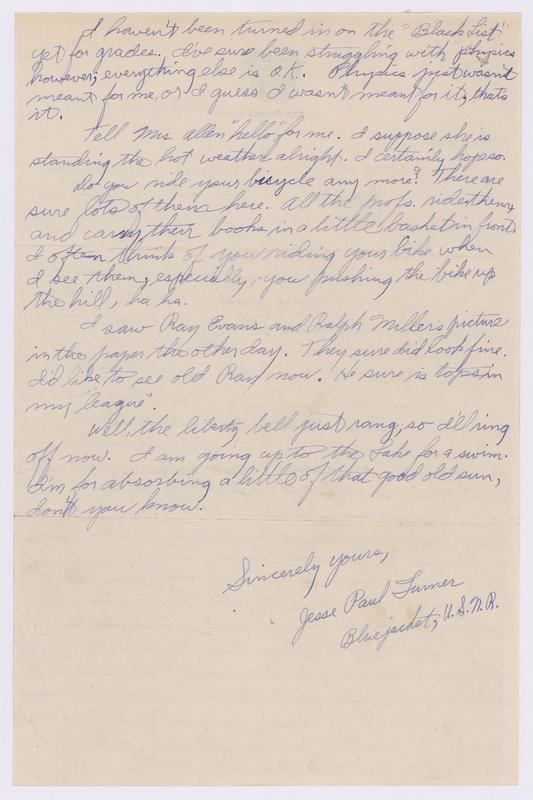 I haven't been turned in on the "Black List"
yet for grades. I've sure been struggling with physics
however; everything else is O.K. Physics just wasn't
meant for me, or I guess I wasn't meant for it, thats
it.
Tell Mrs. Allen "hello" for me. I suppose she is
standing the hot weather alright. I certainly hope so.
Do you ride your bicycle any more? There are
sure lots of them here. All the profs. ride them
and carry their books in a little basket in front.
I often think of you riding your bike when
I see them, especially, you pushing the bike up
the hill, ha ha.
I saw Ray Evans and Ralph Miller's picture
in the paper the other day. They sure did look fine.
I'd like to see old Ray now. He sure is tops in
my "league".
Well, the liberty bell just rang, so I'll ring
off now. I am going up to the Lake for a swim.
I'm for absorbing a little of that good old sun,
don't you know.
Sincerely yours,
Jesse Paul Turner
Bluejacket, U.S.N.R.